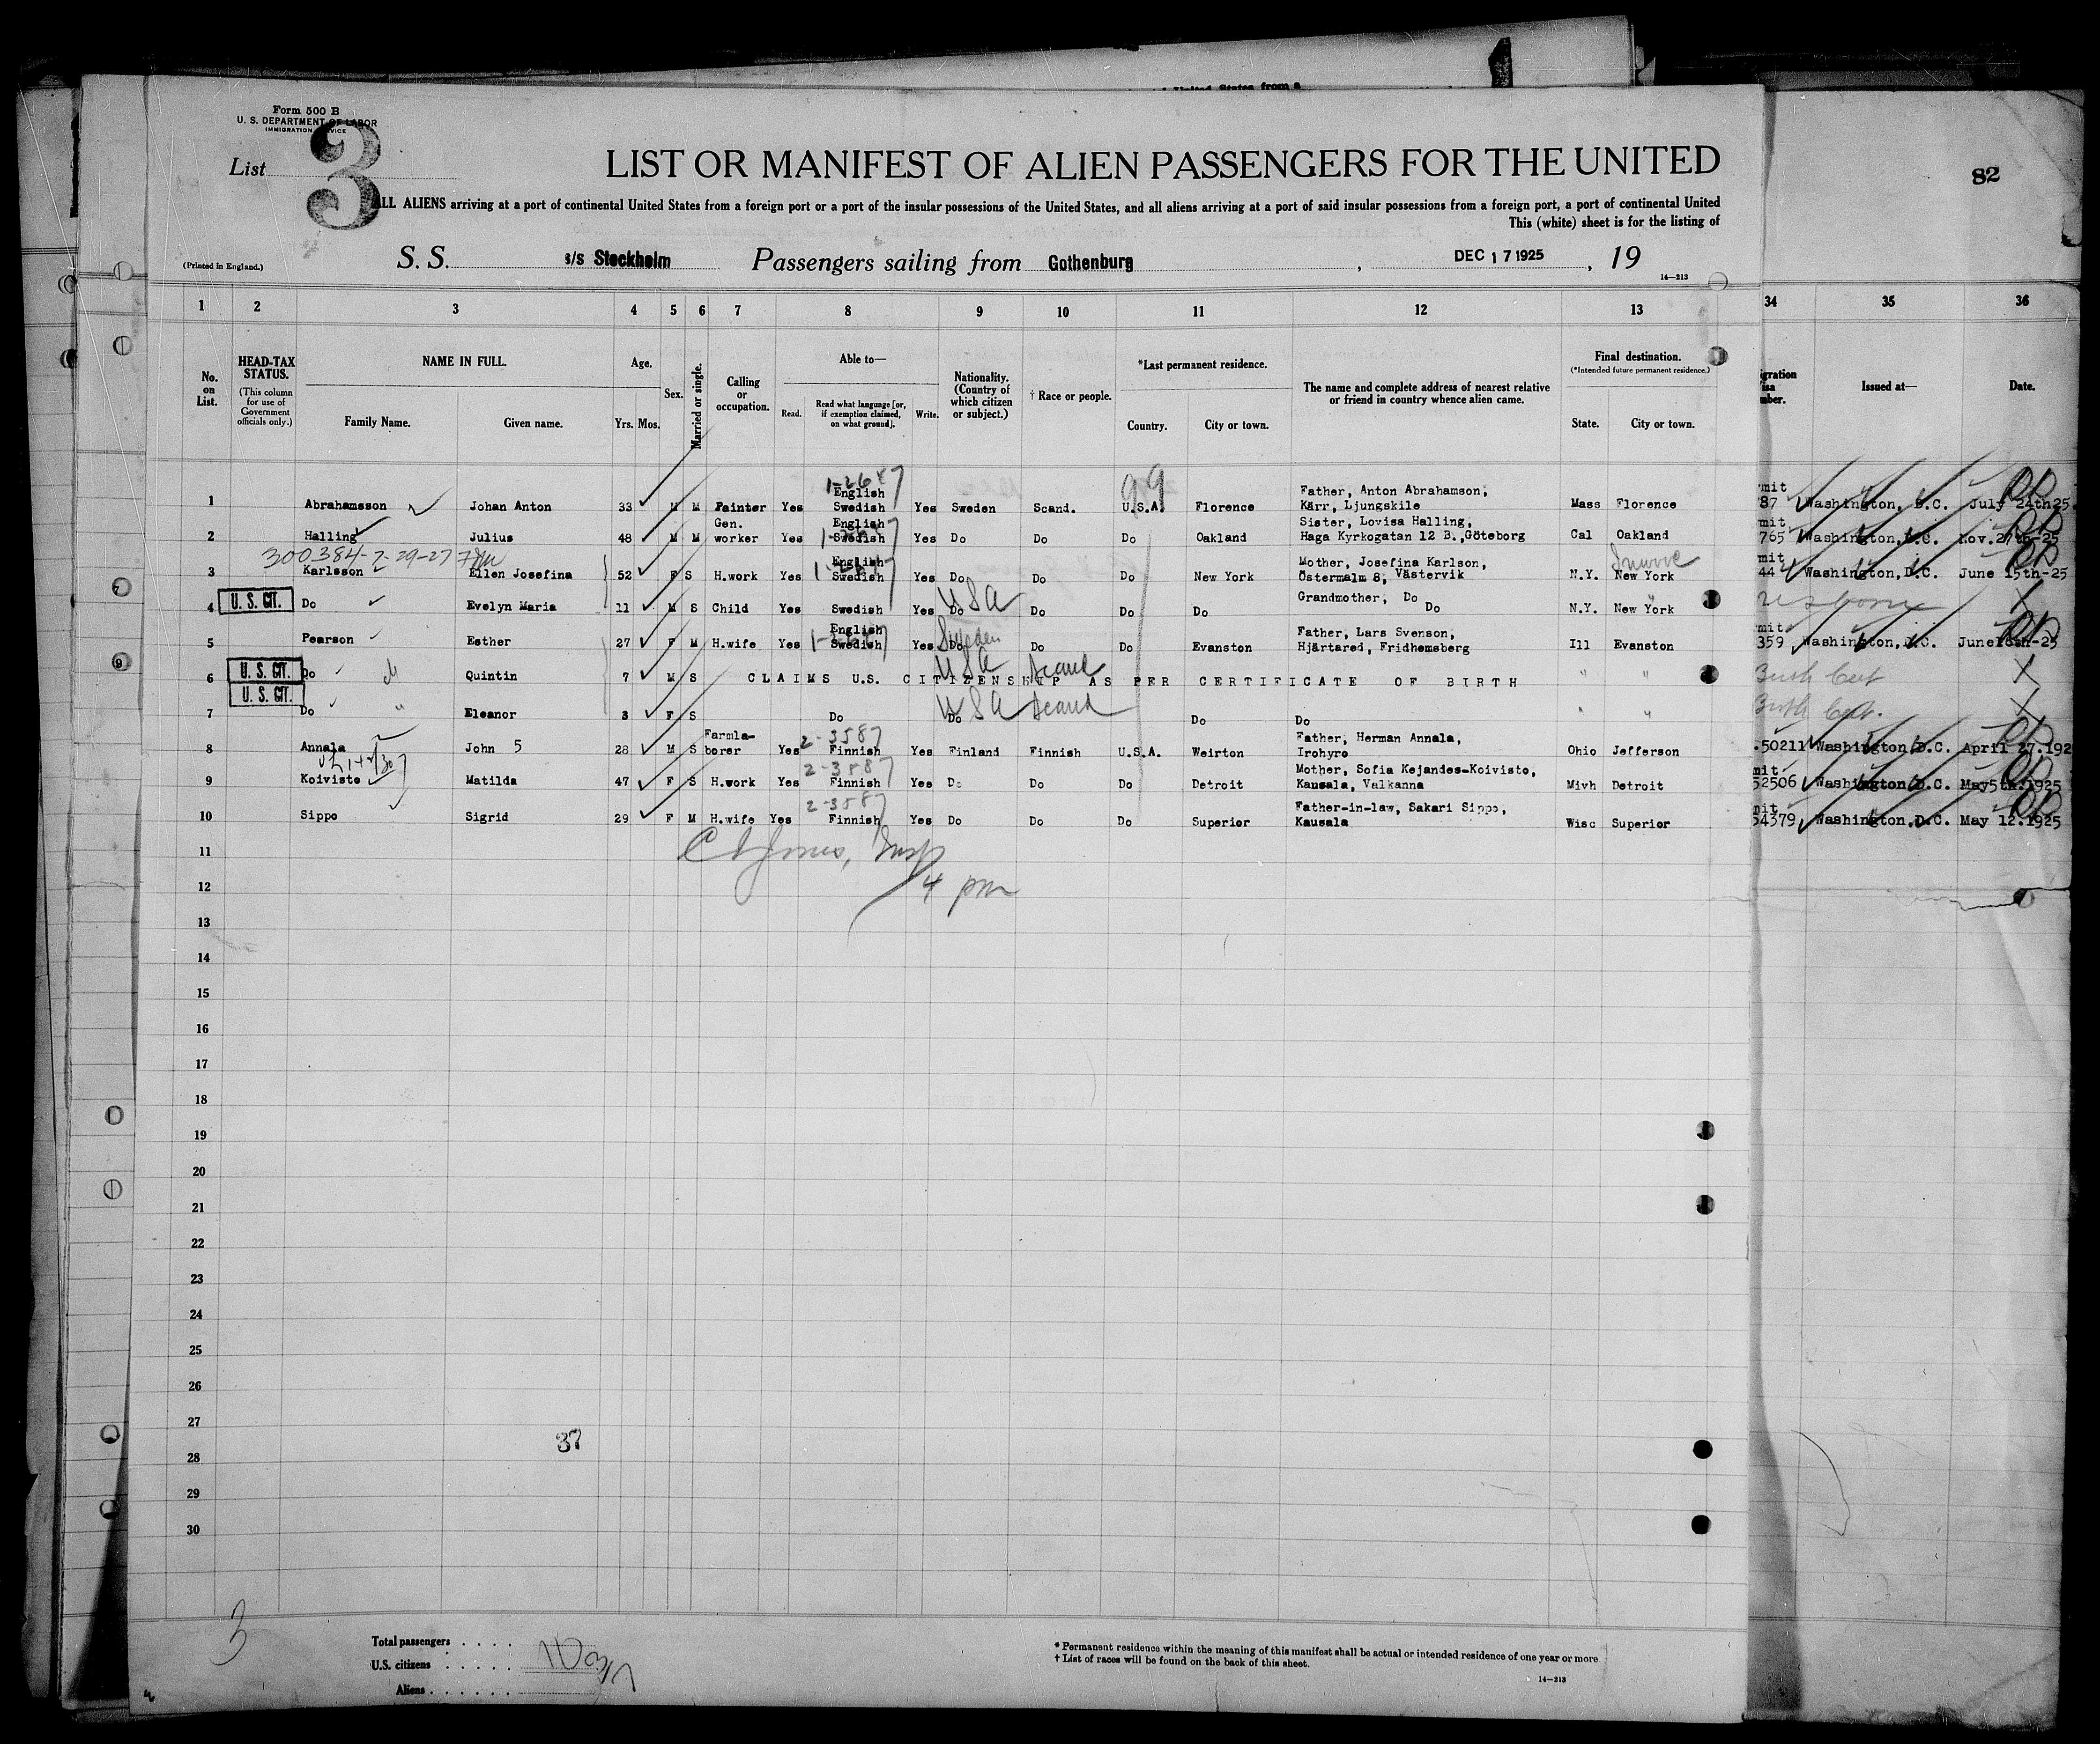 Form 500 B
U. S. DEPARTMENT OF LABOR
IMMIGRATION SERVICE
List 3
LIST OR MANIFEST OF ALIEN PASSENGERS FOR THE UNITED
82
ALL ALIENS arriving at a port of continental United States from a foreign port or a port of the insular possessions of the United States, and all aliens arriving at a port of said insular possessions from a foreign port, a port of continental United
This (white) sheet is for the listing of
(Printed in England.)
S. S. s/s Stockholm Passengers sailing from Gothenburg, DEC 17 1925, 19
14—213
1 2 3 4 5 6 7 8 9 10 11 12 13 34 35 36
No. on List.
HEAD-TAX STATUS.
(This column for use of Government officials only.)
NAME IN FULL.
Family Name. Given name.
Age.
Yrs. Mos.
Sex.
Married or single.
Calling or occupation.
Able to—
Read. Read what language [or, if exemption claimed, on what ground]. Write.
Nationality. (Country of which citizen or subject.)
† Race or people.
*Last permanent residence.
Country. City or town.
The name and complete address of nearest relative or friend in country whence alien came.
Final destination.
(*Intended future permanent residence.)
State. City or town.
Issued at—
Date.
1 Abrahamsson Johan Anton 33 M M Painter Yes English Swedish Yes Sweden Scand. U.S.A. Florence Father, Anton Abrahamson, Kärr, Ljungskile Mass Florence 87 Washington, D.C. July 24th25
1-2647
99
2 Halling Julius 48 M M Gen. worker Yes English Swedish Yes Do Do Do Oakland Sister, Lovisa Halling, Haga Kyrkogatan 12 B.,Göteborg Cal Oakland 765 Washington,D.C. Nov.27th-25
300384-2-29-27
3 Karlsson Ellen Josefina 52 F S H.work Yes English Swedish Yes Do Do Do New York Mother, Josefina Karlson, Östermalm 8, Västervik N.Y. New York 44 Washington,D.C. June 15th-25
U. S. CIT.
4 Do Evelyn Maria 11 M S Child Yes Swedish Yes Do USA Do Do Do Grandmother, Do Do N.Y. New York
5 Pearson Esther 27 F M H.wife Yes English Swedish Yes Do Sweden Do Do Evanston Father, Lars Svenson, Hjärtared, Fridhemsberg Ill Evanston 359 Washington,D.C. June16th-25
U. S. CIT.
6 Do Quintin 7 M S CLAIMS U.S. CITIZENSHIP AS PER CERTIFICATE OF BIRTH
USA Scand
Birth Cert
U. S. CIT.
7 Do Eleanor 3 F S Do Do USA Scand Do Do Birth Cert.
8 Annala John 5 28 M S Farmla-borer Yes Finnish Yes Finland Finnish U.S.A. Weirton Father, Herman Annala, Irohyro Ohio Jefferson 50211 Washington,D.C. April 27.192
2-3587
9 Koivisto Matilda 47 F S H.work Yes Finnish Yes Do Do Do Detroit Mother, Sofia Kejandes-Koivisto, Kausala, Valkanna Mivh Detroit 52506 Washington,D.C. May5th.1925
2-3587
10 Sippo Sigrid 29 F M H.wife Yes Finnish Yes Do Do Do Superior Father-in-law, Sakari Sippo, Kausala Wisc Superior 54379 Washington,D.C. May 12.1925
2-3587
11
4 pm
12
13
14
15
16
17
18
19
20
21
22
23
24
25
26
27
37
28
29
30
3
Total passengers . . . .
U.S. citizens . . . . .
Aliens . . . . . .
* Permanent residence within the meaning of this manifest shall be actual or intended residence of one year or more
† List of races will be found on the back of this sheet.
14—213